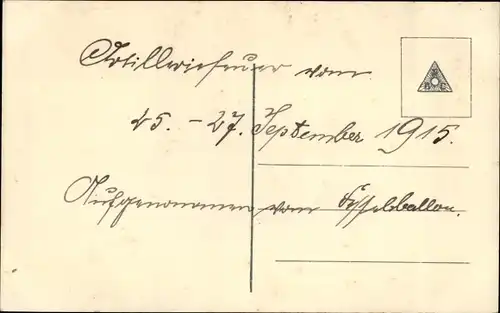 Artilleriefeuer vom
25. - 27. September 1915.
Aufgenommen vom Fesselballon.